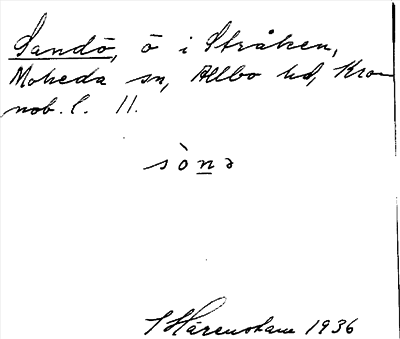 Sandö, ö i Stråken,
Moheda sn, Allbo hd, Kro-
nob. l. 11.
sònə
S Härenstam 1936